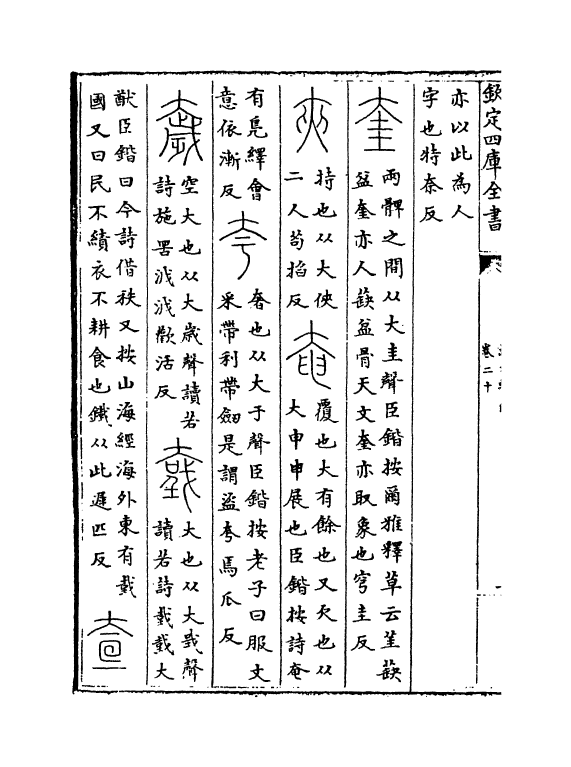 欽定四庫全書
卷二十
亦以此為人
字也特奈反
奎 兩髀之間从大圭聲臣鍇按爾雅釋草云茥蒛
盆奎亦人蒛盆骨天文奎亦取象也穹圭反
夾 持也从大俠
二人苟掐反
奄 覆也大有餘也又欠也从
大申申展也臣鍇按詩奄
有鳧繹會
意依漸反
夸 奢也从大于聲臣鍇按老子曰服文
采帶利帶劒是謂盜夸焉瓜反
奯 空大也从大歲聲讀若
詩施罟泧泧歡活反
大也从大戜聲
讀若詩戜戜大
猷臣鍇曰今詩借秩又按山海經海外東有戜
國又曰民不績衣不耕食也鐵从此遲匹反